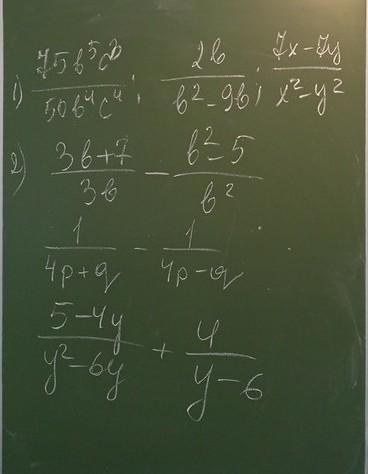 1) 75b⁵c³/50b⁴c⁴; 2b/b²-9b; 7x-7y/x²-y²
2) 3b+7/3b - b²-5/b²
1/4p+q - 1/4p-q
5-4y/y²-6y + 4/y-6